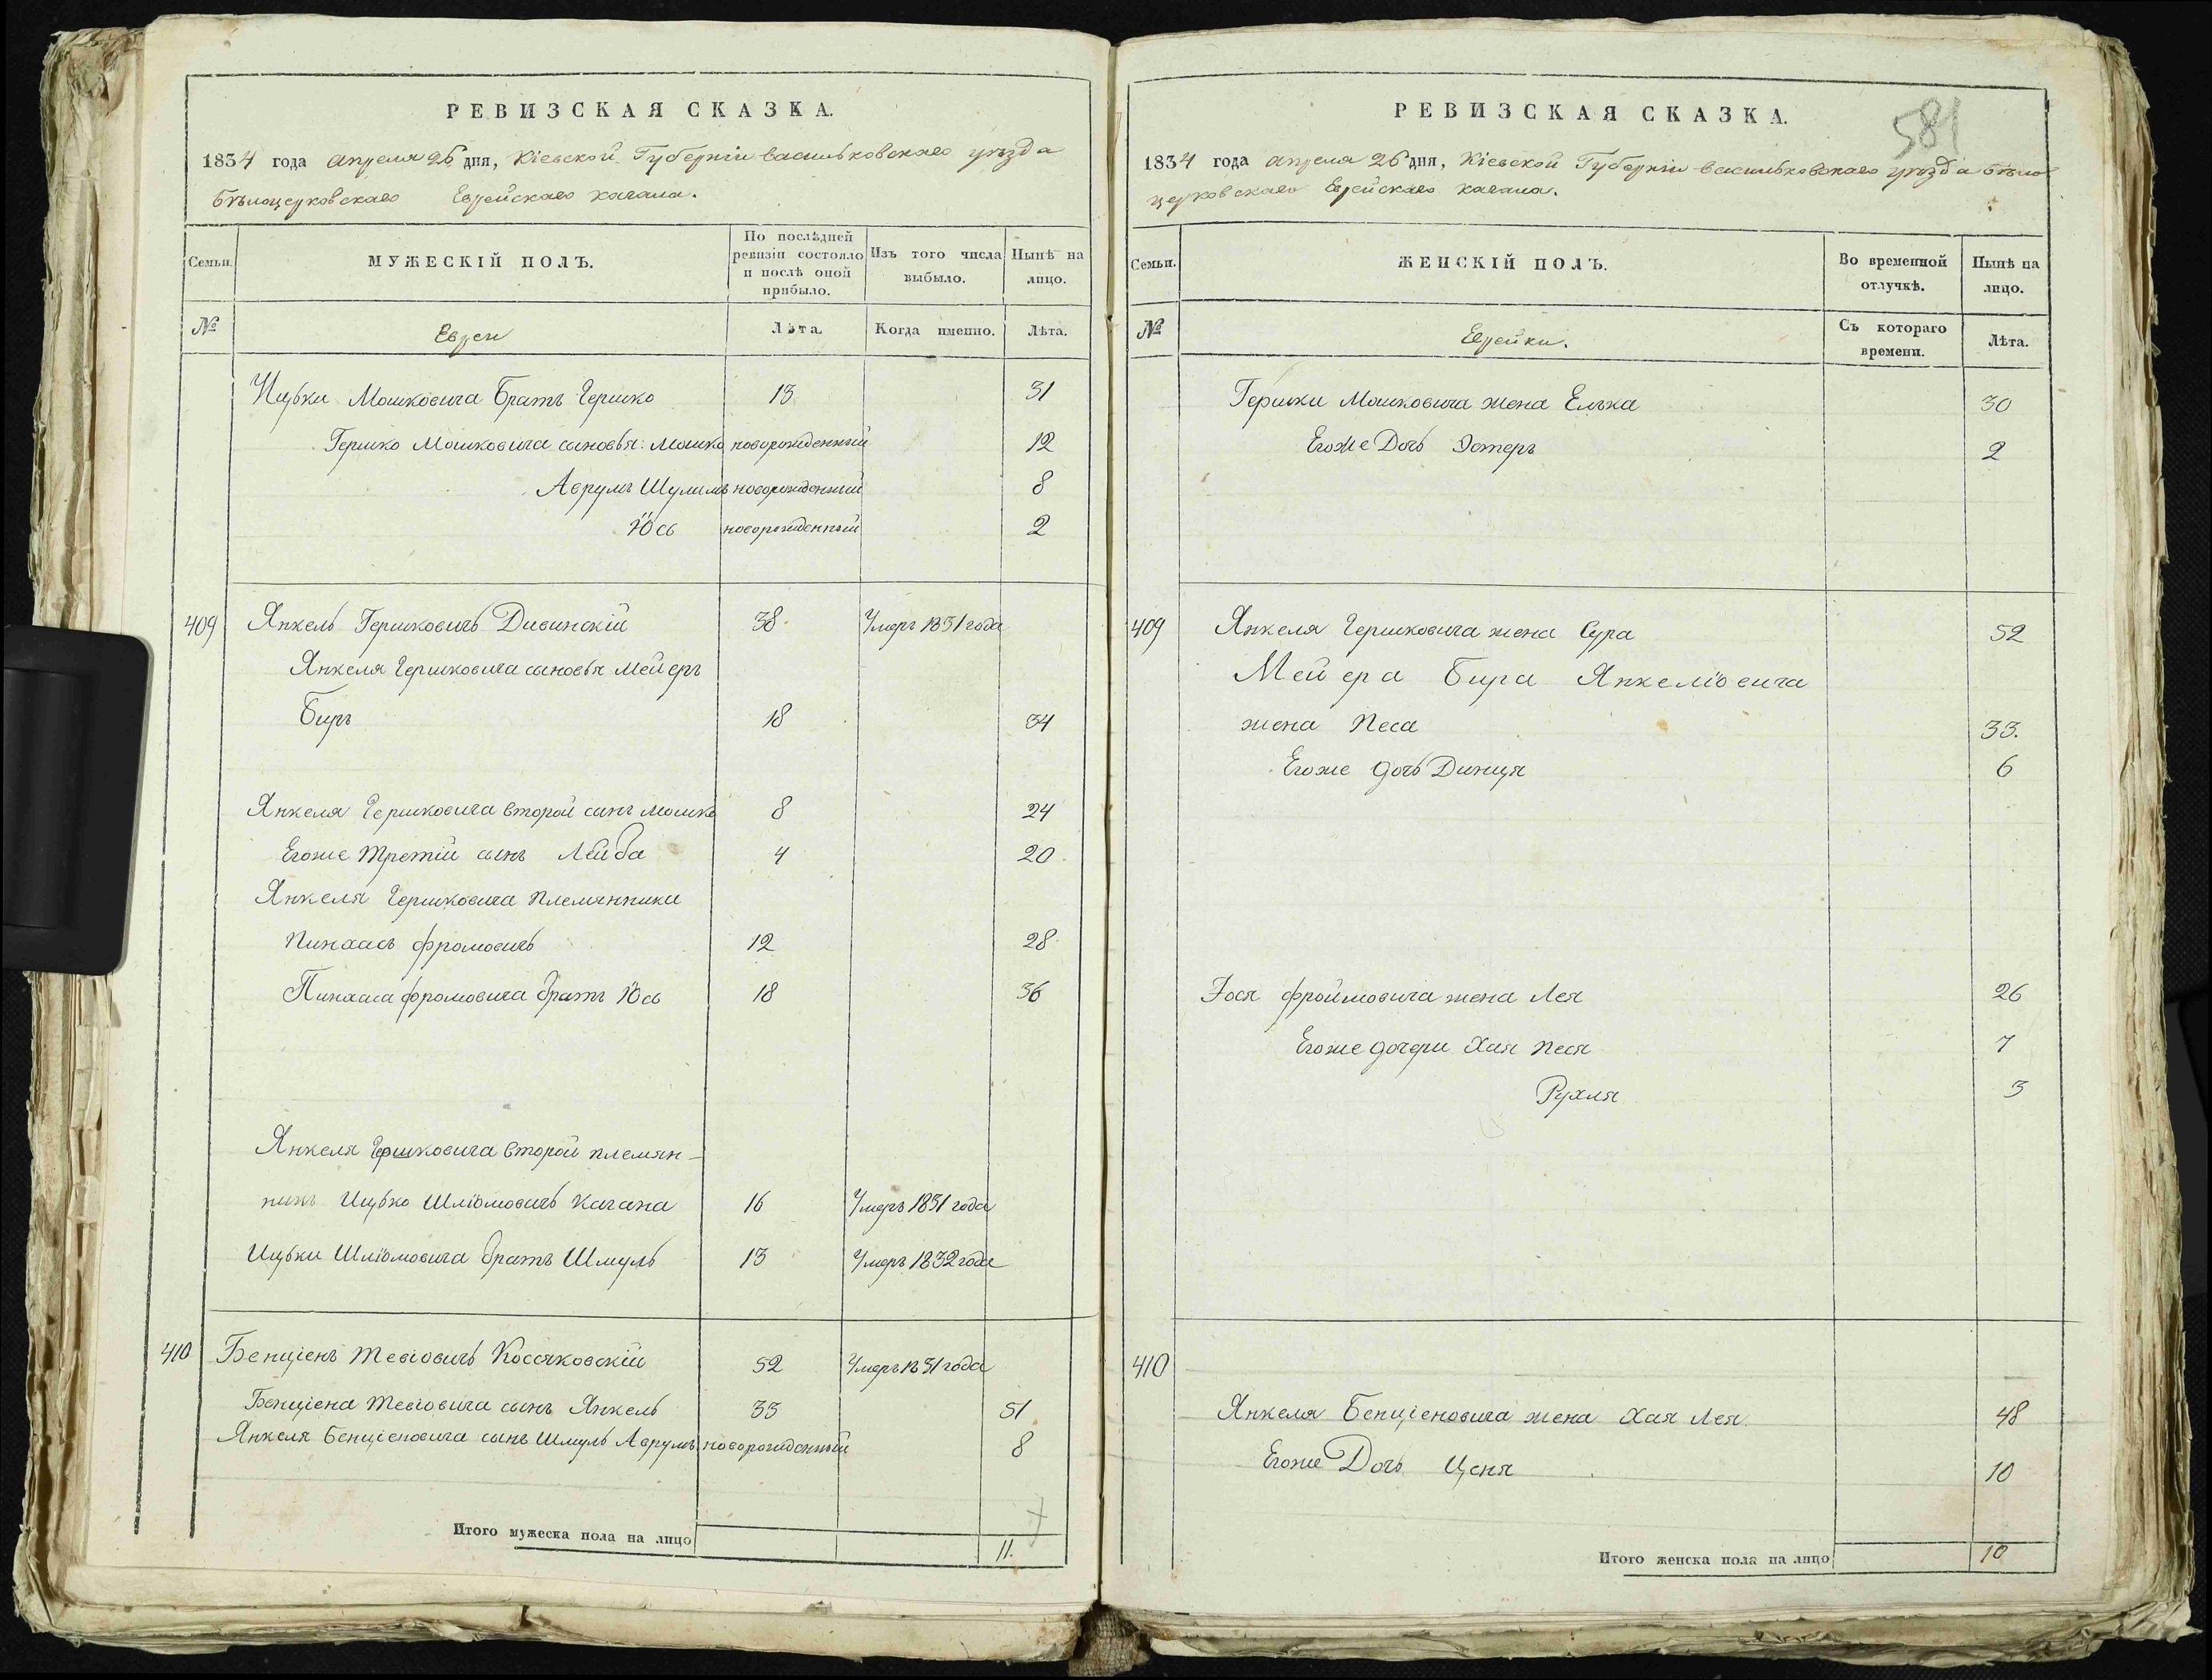 РЕВИЗСКАЯ СКАЗКА.
1834 года апреля 26 дня, Кіевской Губерніи васильковскаго уѣзда
бѣлоцерковскаго Еврейскаго кагала.
Семьи.
МУЖЕСКІЙ ПОЛЪ.
По послѣдней ревизіи состояло и послѣ оной прибыло.
Изъ того числа выбыло.
Нынѣ на лицо.
№
Евреи
Лѣта.
Когда именно.
Лѣта.
Ицьки Мошковича братъ Гершко 13 31
Гершко Мошковича сыновья: Мошко новорожденный 12
Аврумъ Шулимъ новорожденный 8
Юсь новорожденный 2
409 Янкель Гершковичъ Дивинскій 38. Умеръ 1831 года
Янкеля Гершковича сыновья Мейеръ
Биръ 18 34
Янкеля Гершковича второй сынъ мошко 8 24
Егоже третій сынъ Лейба 4 20
Янкеля Гершковича племянники
Пинхасъ фромовичъ 12 28
Пинхаса фромовича братъ Юсь 18 36
Янкеля Гершковича второй племян-
никъ Ицько Шліомовичъ Кагана 16 Умеръ 1831 года
Ицьки Шліомовича братъ Шмуль 13 Умеръ 1832 года
410 Бенціенъ Тевіовичъ Коссяковскій 52 Умеръ 1831 года
Бенціена Тевіовича сынъ Янкель 33 51
Янкеля Бенціеновича сынъ Шмуль Аврумъ новорожденный 8
Итого мужеска пола на лицо 11.
581
РЕВИЗСКАЯ СКАЗКА.
1834 года апреля 26 дня, Кіевской Губерніи васильковскаго уѣзда бѣло
церковскаго Еврейскаго кагала.
Семьи.
ЖЕНСКІЙ ПОЛЪ.
Во временной отлучкѣ.
Нынѣ на лицо.
№
Еврейки.
Съ котораго времени.
Лѣта.
Гершки Мошковича жена Елька 30
Егоже Дочь Эстеръ 2
409 Янкеля Гершковича жена Сура 52
Мейера Бира Янкеліовича
жена Песа 33.
Егоже дочь Динця 6
Іося фроймовича жена Лея 26
Егоже дочери Хая Песя 7
Рухля 3
410
Янкеля Бенціеновича жена Хая Лея. 48
Егоже Дочь Цсня 10
Итого женска пола на лицо 10